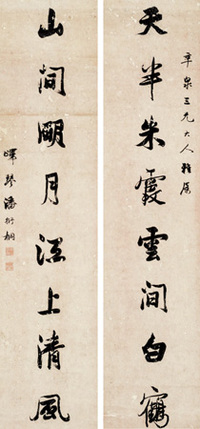 辛泉三兄大人雅屬
天半朱霞雲間白鶴
山間朙月江上清風
嶧琴潘衍桐